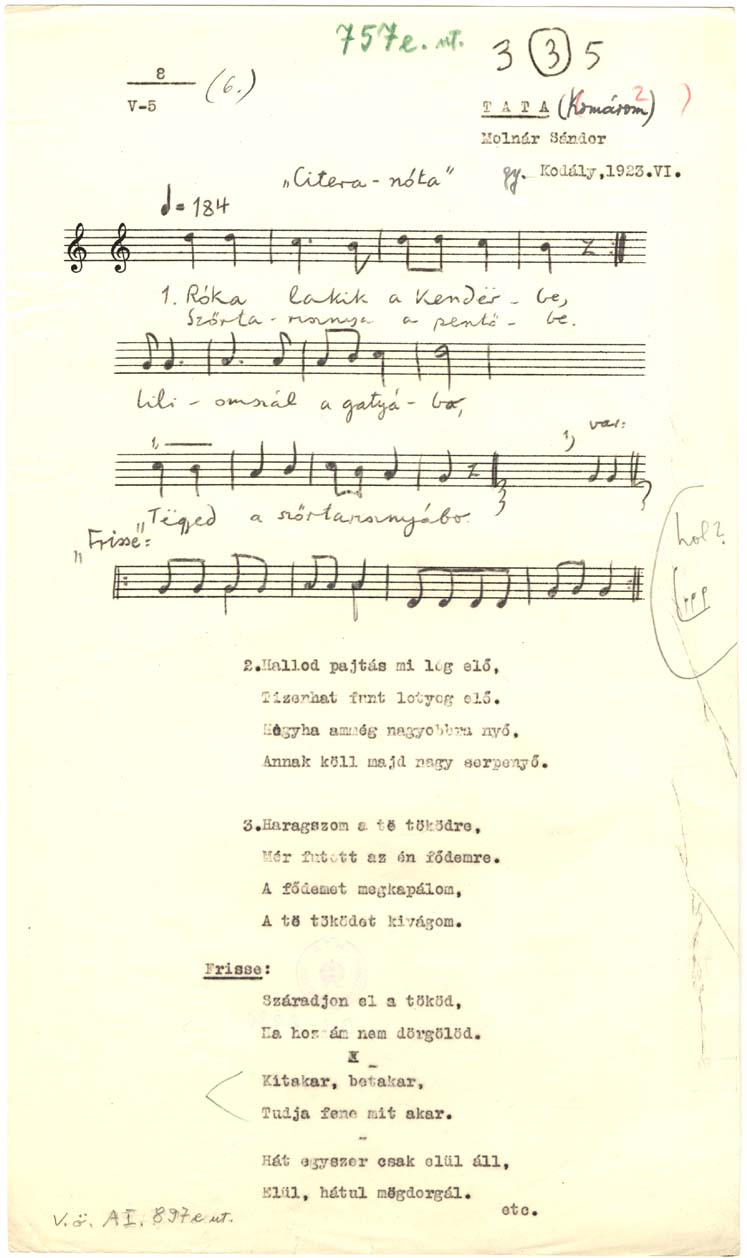 757e. ut.
3 3 5
8
V-5
(6.)
TATA (Komárom) 2 )
Molnár Sándor
gy. Kodály,1923.VI.
„Citera - nóta"
= 184
1. Róka lakik a kendër - be,
Szőrta - risznya a pentő - be.
Lili - omszál a gatyá - ba,
1) var:
1)
Tëgyed a szőrtarisznyábo.
„Frisse":
hol?
2.Hallod pajtás mi lóg elő,
Tizenhat funt lotyog elő.
Mégyha ammég nagyobbra nyő,
Annak köll majd nagy serpenyő.
3.Haragszom a të töködre,
Mér futott az én födemre.
A födemet megkapálom,
A të töködet kivágom.
Frisse:
Száradjon el a tököd,
Ha hozzám nem dörgölöd.
x
Kitakar, betakar,
Tudja fene mit akar.
Hát egyszer csak elül áll,
Elül, hátul mëgdorgál.
etc.
V.ö. AI. 897e ut.